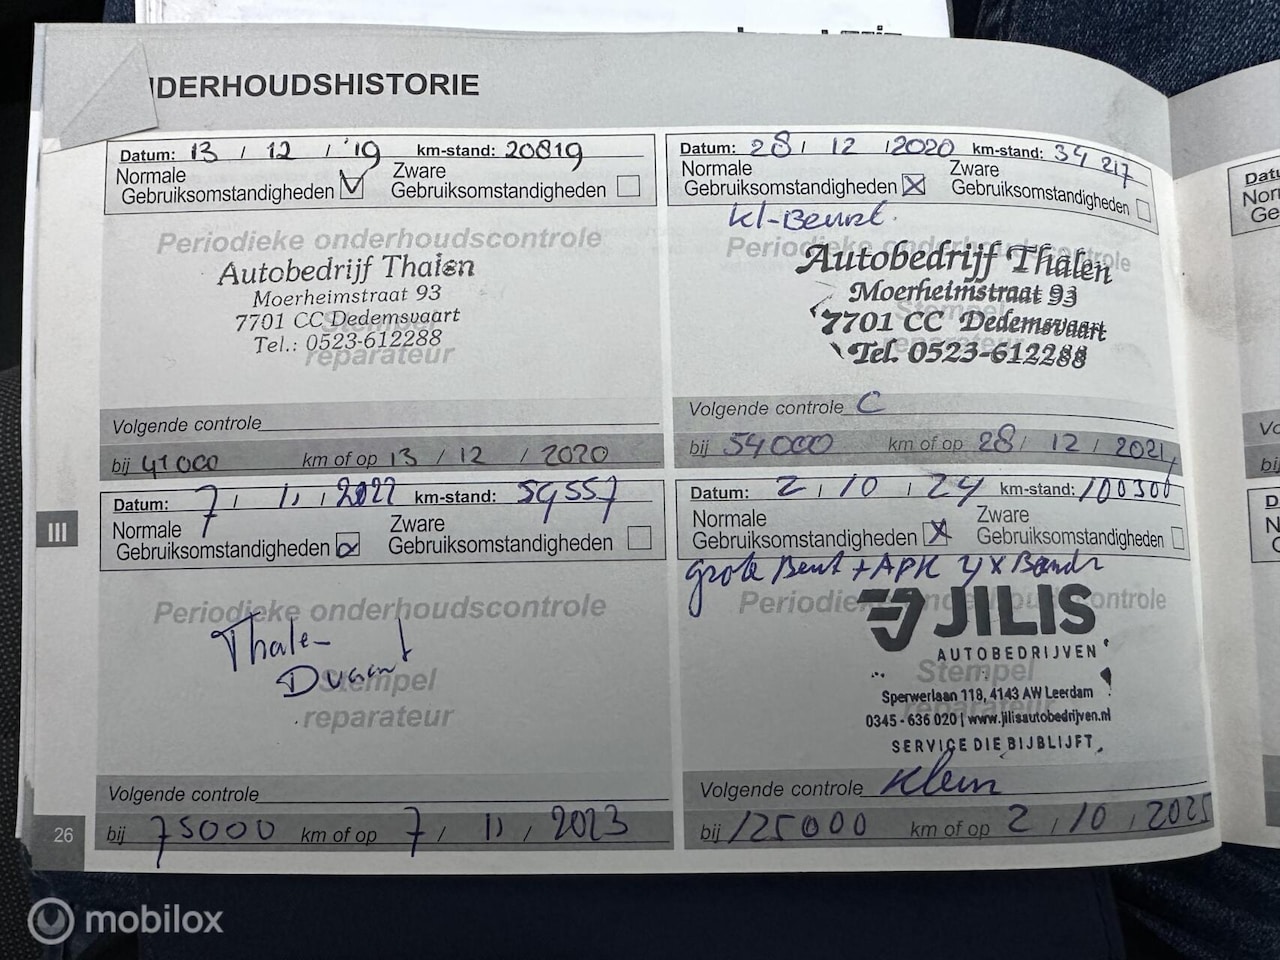 NDERHOUDSHISTORIE
Datum: 13 / 12 / '19 km-stand: 20819
Normale Gebruiksomstandigheden
Zware Gebruiksomstandigheden
Periodieke onderhoudscontrole
Autobedrijf Thalen
Moerheimstraat 93
7701 CC Dedemsvaart
Tel.: 0523-612288
Stempel
reparateur
Volgende controle
bij 41000 km of op 13 / 12 / 2020
Datum: 28 / 12 / 2020 km-stand: 34 217
Normale Gebruiksomstandigheden
Zware Gebruiksomstandigheden
kl-Beurt.
Periodieke onderhoudscontrole
Autobedrijf Thalen
Moerheimstraat 93
7701 CC Dedemsvaart
Tel. 0523-612288
Stempel
reparateur
Volgende controle C
bij 54000 km of op 28 / 12 / 2021
Datum: 7 / 11 / 2022 km-stand: 59557
Normale Gebruiksomstandigheden
Zware Gebruiksomstandigheden
Periodieke onderhoudscontrole
Thale-
Stempel
reparateur
Volgende controle
bij 75000 km of op 7 / 11 / 2023
Datum: 2 / 10 / 24 km-stand: 100300
Normale Gebruiksomstandigheden
Zware Gebruiksomstandigheden
grote Beurt + APK 4x Banden
Periodieke onderhoudscontrole
JILIS
AUTOBEDRIJVEN
Stempel
reparateur
Sperwerlaan 118, 4143 AW Leerdam
0345 - 636 020 | www.jilisautobedrijven.nl
SERVICE DIE BIJBLIJFT
Volgende controle Klein
bij 125000 km of op 2 / 10 / 2025
III
26
mobilox